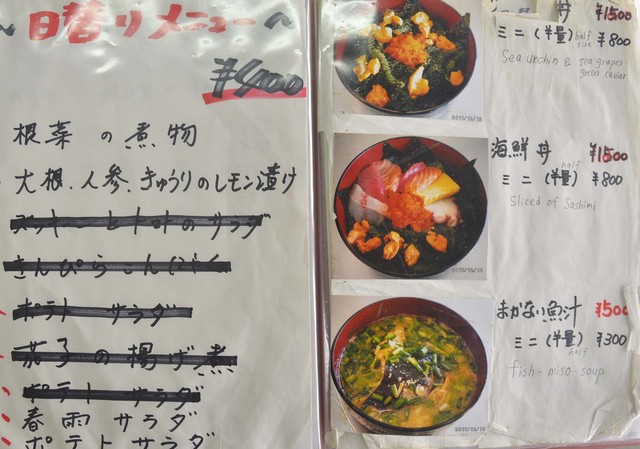 ~日替りメニュー~
¥400
根菜の煮物
大根、人参、きゅうりのレモン漬け
きんぴらごぼう
ポテトサラダ
茄子の揚げ煮
ポテトサラダ
春雨サラダ
ポテトサラダ
丼 ¥1500
ミニ(半量) half size ¥800
Sea urchin & sea grapes
green caviar
海鮮丼 ¥1500
ミニ(半量) half ¥800
Sliced of Sashimi
まかない魚汁 ¥500
ミニ(半量) half ¥300
fish-miso-soup